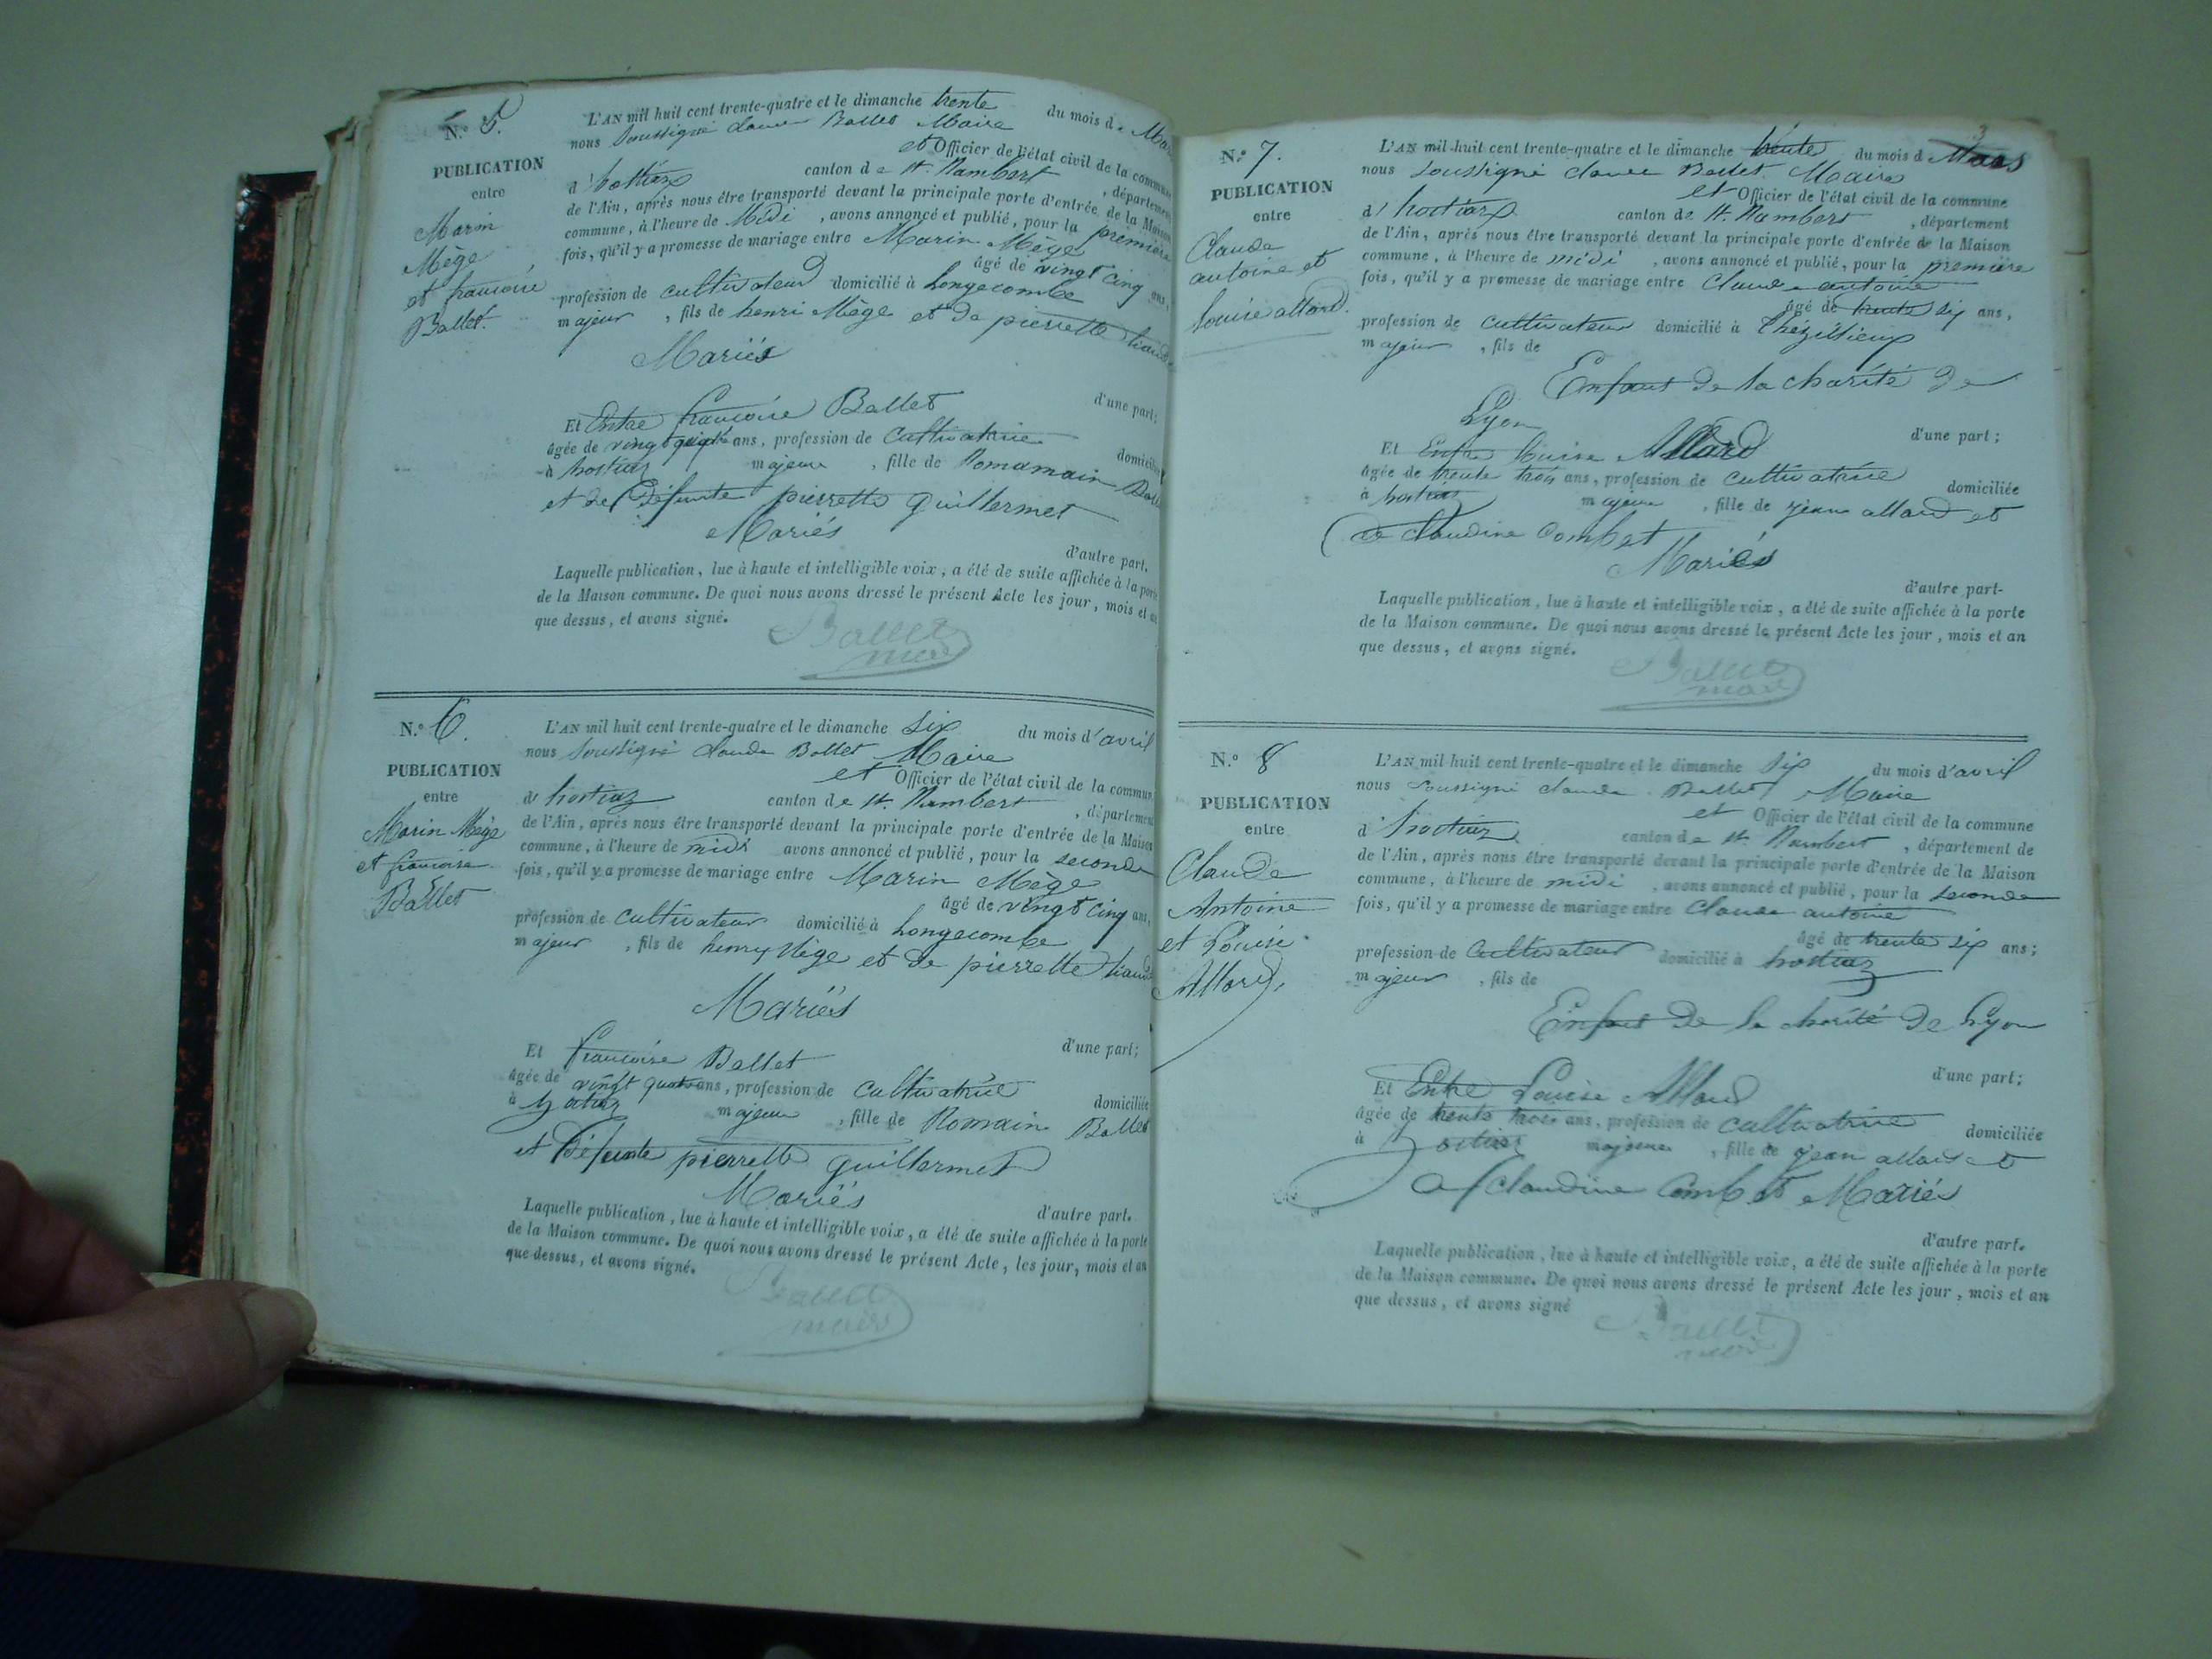 N.º 5.
PUBLICATION
entre
Marin
Mège
et françoise
Ballet.
L'AN mil huit cent trente-quatre et le dimanche trente du mois de
nous soussigné claude Ballet Maire
et Officier de l'état civil de la commune
d'hostiaz canton de St. Rambert, département
de l'Ain, après nous être transporté devant la principale porte d'entrée de la Maison
commune, à l'heure de Midi, avons annoncé et publié, pour la première
fois, qu'il y a promesse de mariage entre Marin Mège
âgé de vingt cinq ans,
profession de cultivateur domicilié à longecombe
majeur, fils de henri Mège et de pierrette
Mariés
d'une part;
Et Entre françoise Ballet
âgée de vingt ans, profession de cultivatrice domiciliée
à hostiaz majeure, fille de Romamain
et de Défunte pierrette guillermet
Mariés
d'autre part.
Laquelle publication, lue à haute et intelligible voix, a été de suite affichée à la porte
de la Maison commune. De quoi nous avons dressé le présent Acte les jour, mois et an
que dessus, et avons signé.
Ballet
maire
N.º 6.
PUBLICATION
entre
Marin Mège
et françoise
Ballet
L'AN mil huit cent trente-quatre et le dimanche six du mois d'avril
nous soussigné claude Ballet Maire
et Officier de l'état civil de la commune
d'hostiaz canton de St. Rambert, département
de l'Ain, après nous être transporté devant la principale porte d'entrée de la Maison
commune, à l'heure de midi avons annoncé et publié, pour la seconde
fois, qu'il y a promesse de mariage entre Marin Mège
âgé de vingt cinq ans,
profession de cultivateur domicilié à longecombe
majeur, fils de henry Mège et de pierrette
Mariés
d'une part;
Et françoise Ballet
âgée de vingt quatre ans, profession de cultivatrice domiciliée
à hostiaz majeure, fille de Romain Ballet
et Défunte pierrette guillermet
Mariés
d'autre part.
Laquelle publication, lue à haute et intelligible voix, a été de suite affichée à la porte
de la Maison commune. De quoi nous avons dressé le présent Acte, les jour, mois et an
que dessus, et avons signé.
Ballet
maire
3
N.º 7.
PUBLICATION
entre
Claude
antoine et
louise allard.
L'AN mil huit cent trente-quatre et le dimanche trente du mois d Mars
nous soussigné claude Ballet Maire
et Officier de l'état civil de la commune
d'hostiaz canton de St. Rambert, département
de l'Ain, après nous être transporté devant la principale porte d'entrée de la Maison
commune, à l'heure de midi, avons annoncé et publié, pour la première
fois, qu'il y a promesse de mariage entre Claude antoine
âgé de trente six ans,
profession de cultivateur domicilié à
majeur, fils de
Enfant de la charité de
Lyon
d'une part;
Et Entre louise Allard
âgée de trente trois ans, profession de cultivatrice domiciliée
à hostiaz majeure, fille de jean allard et
de Claudine Combet
Mariés
d'autre part.
Laquelle publication, lue à haute et intelligible voix, a été de suite affichée à la porte
de la Maison commune. De quoi nous avons dressé le présent Acte les jour, mois et an
que dessus, et avons signé.
Ballet
maire
N.º 8
PUBLICATION
entre
Claude
Antoine
et Louise
Allard,
L'AN mil huit cent trente-quatre et le dimanche six du mois d'avril
nous soussigné claude Ballet Maire
et Officier de l'état civil de la commune
d'hostiaz canton de St. Rambert, département de
de l'Ain, après nous être transporté devant la principale porte d'entrée de la Maison
commune, à l'heure de midi, avons annoncé et publié, pour la seconde
fois, qu'il y a promesse de mariage entre Claude antoine
âgé de trente six ans;
profession de Cultivateur domicilié à hostiaz
majeur, fils de
Enfant de la charité de Lyon
d'une part;
Et Entre Louise Allard
âgée de trente trois ans, profession de cultivatrice domiciliée
à hostiaz majeure, fille de jean allard et
de Claudine Combet Mariés
d'autre part.
Laquelle publication, lue à haute et intelligible voix, a été de suite affichée à la porte
de la Maison commune. De quoi nous avons dressé le présent Acte les jour, mois et an
que dessus, et avons signé
Ballet
maire